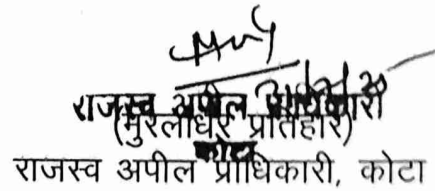 राजस्व अपील प्राधिकारी
(मुरलीधर प्रतिहार)
कोटा
राजस्व अपील प्राधिकारी, कोटा